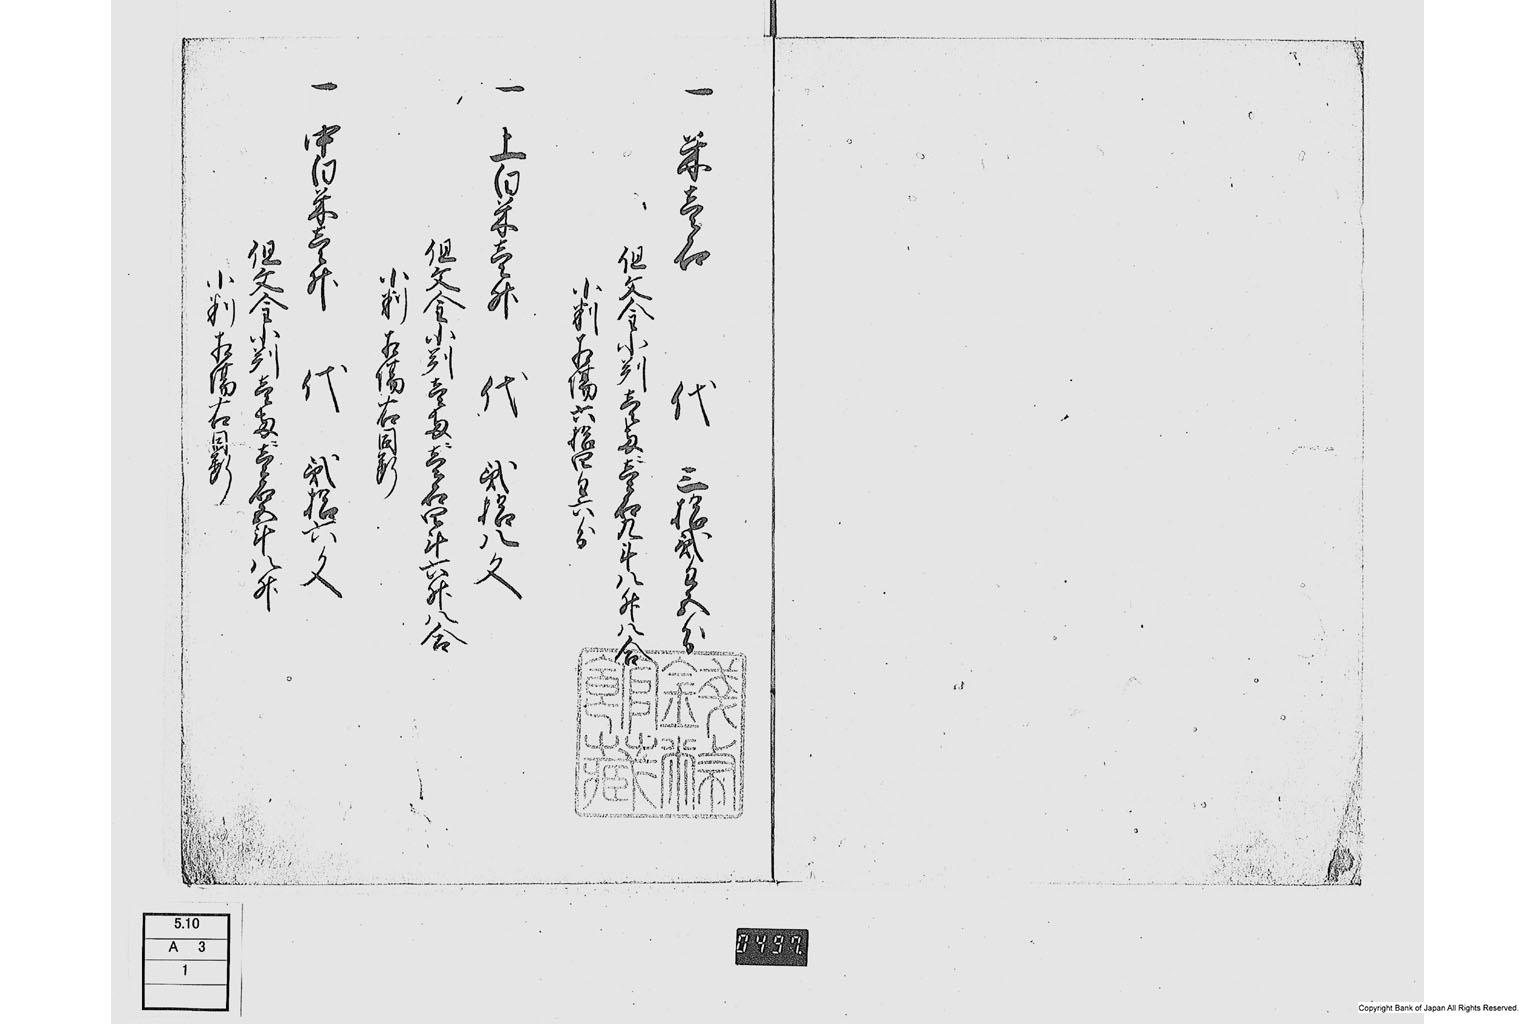 一 米壱石　代 三拾弐匁五分
但文金小判壱両ニ壱石九斗八升八合
小判相場六拾四匁六分
一 上白米壱升　代 弐拾八文
但文金小判壱両ニ壱石四斗六升八合
小判相場右同断
一 中白米壱升　代 弐拾六文
但文金小判壱両ニ壱石五斗八升
小判相場右同断
錢幣
館藏
5.10
A 3
1
0497.
Copyright Bank of Japan All Rights Reserved.